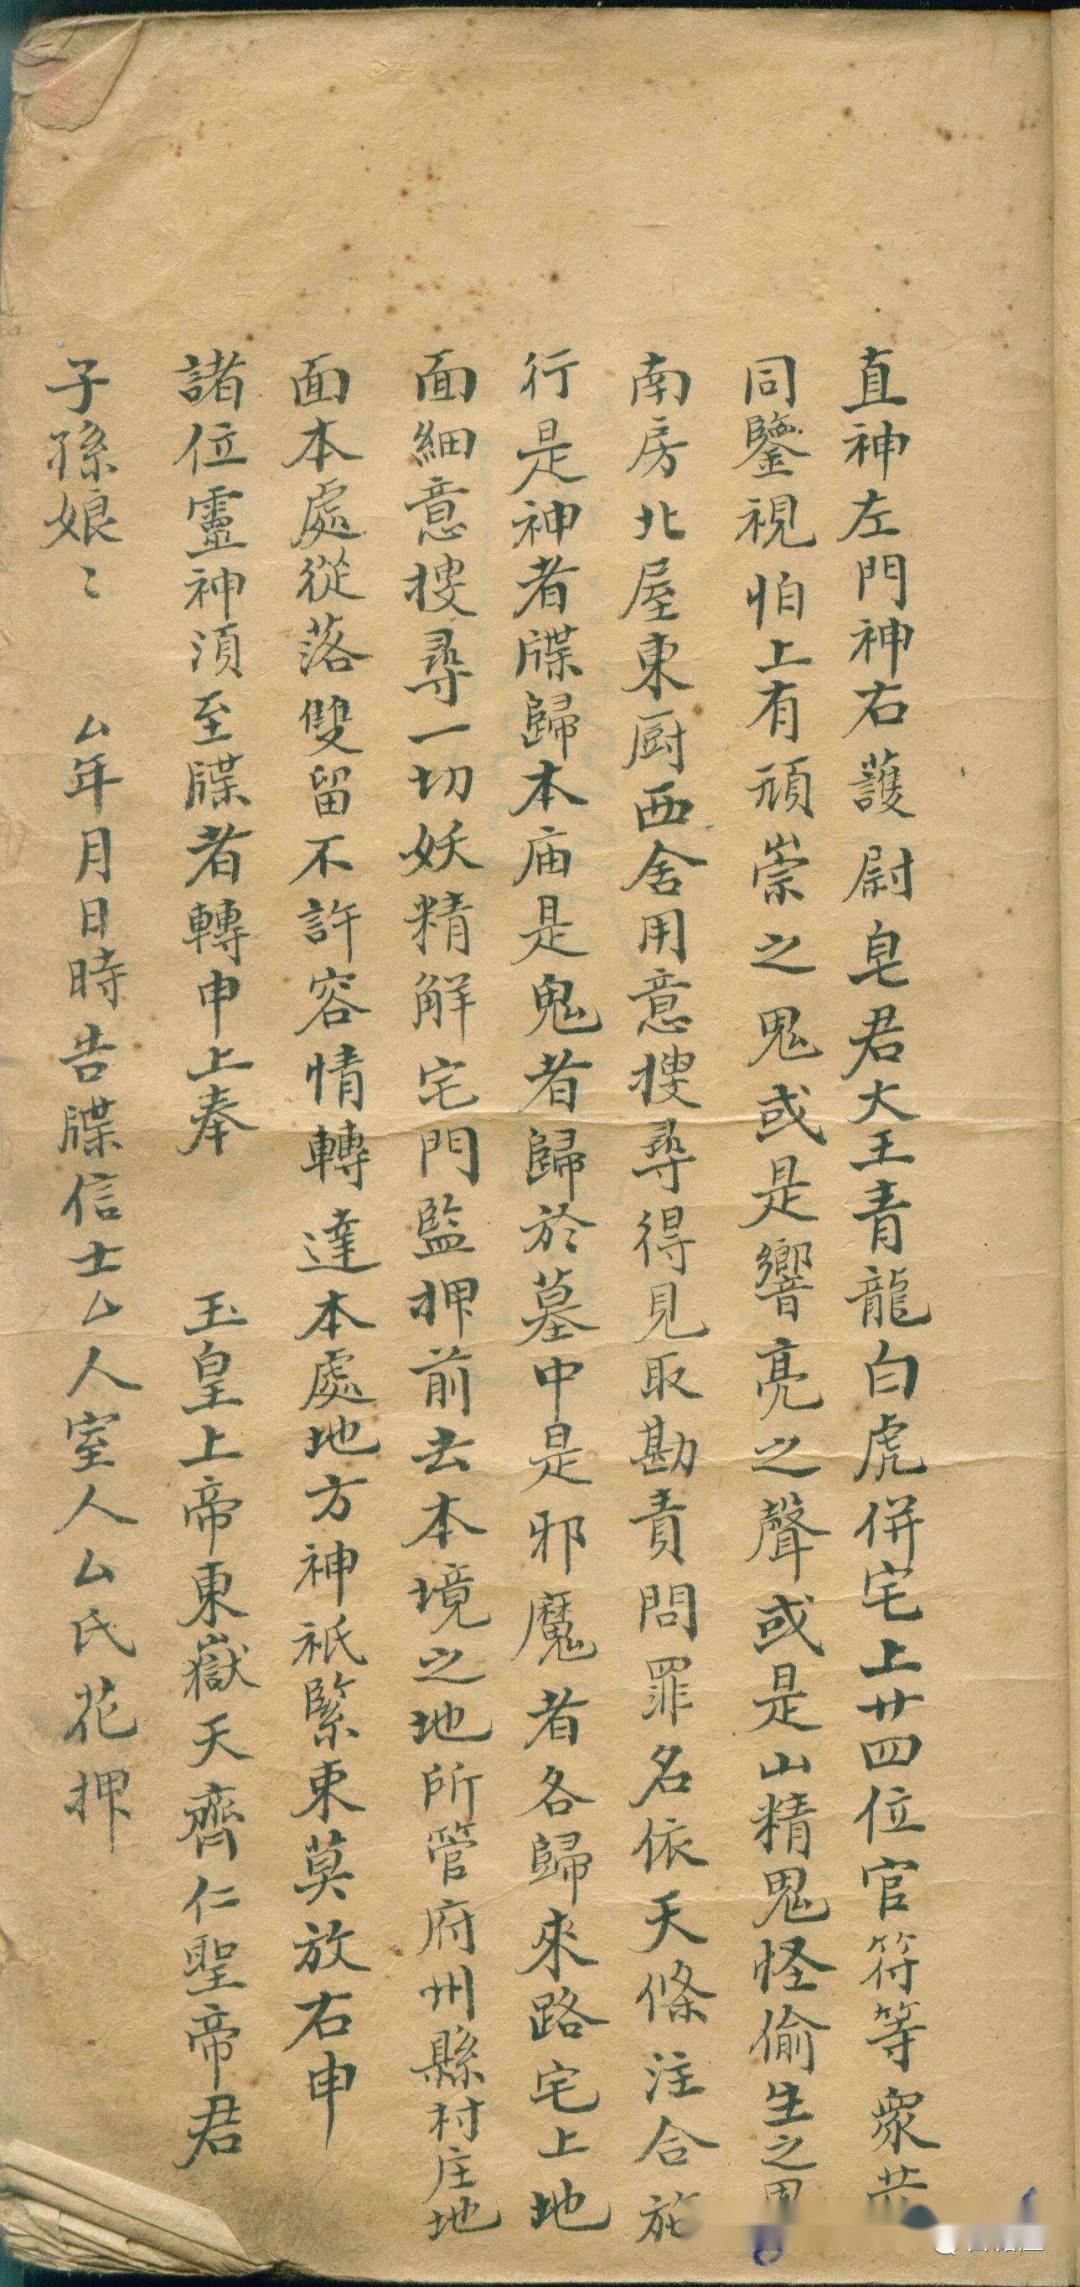 直神左門神右護尉皂君大王青龍白虎併宅上廿四位官符等衆共
同鑒視怕上有頑崇之鬼或是響亮之聲或是山精鬼怪偷生之鬼
南房北屋東厨西舍用意搜尋得見取勘責問罪名依天條注合施
行是神者牒歸本庙是鬼者歸於墓中是邪魔者各歸來路宅上地
面細意搜尋一切妖精解宅門監押前去本境之地所管府州縣村庄地
面本處從落雙留不許容情轉達本處地方神祇緊束莫放右申
諸位靈神須至牒者轉申上奉 玉皇上帝東嶽天齊仁聖帝君
子孫娘〻 厶年月日時告牒信士厶人室人厶氏花押